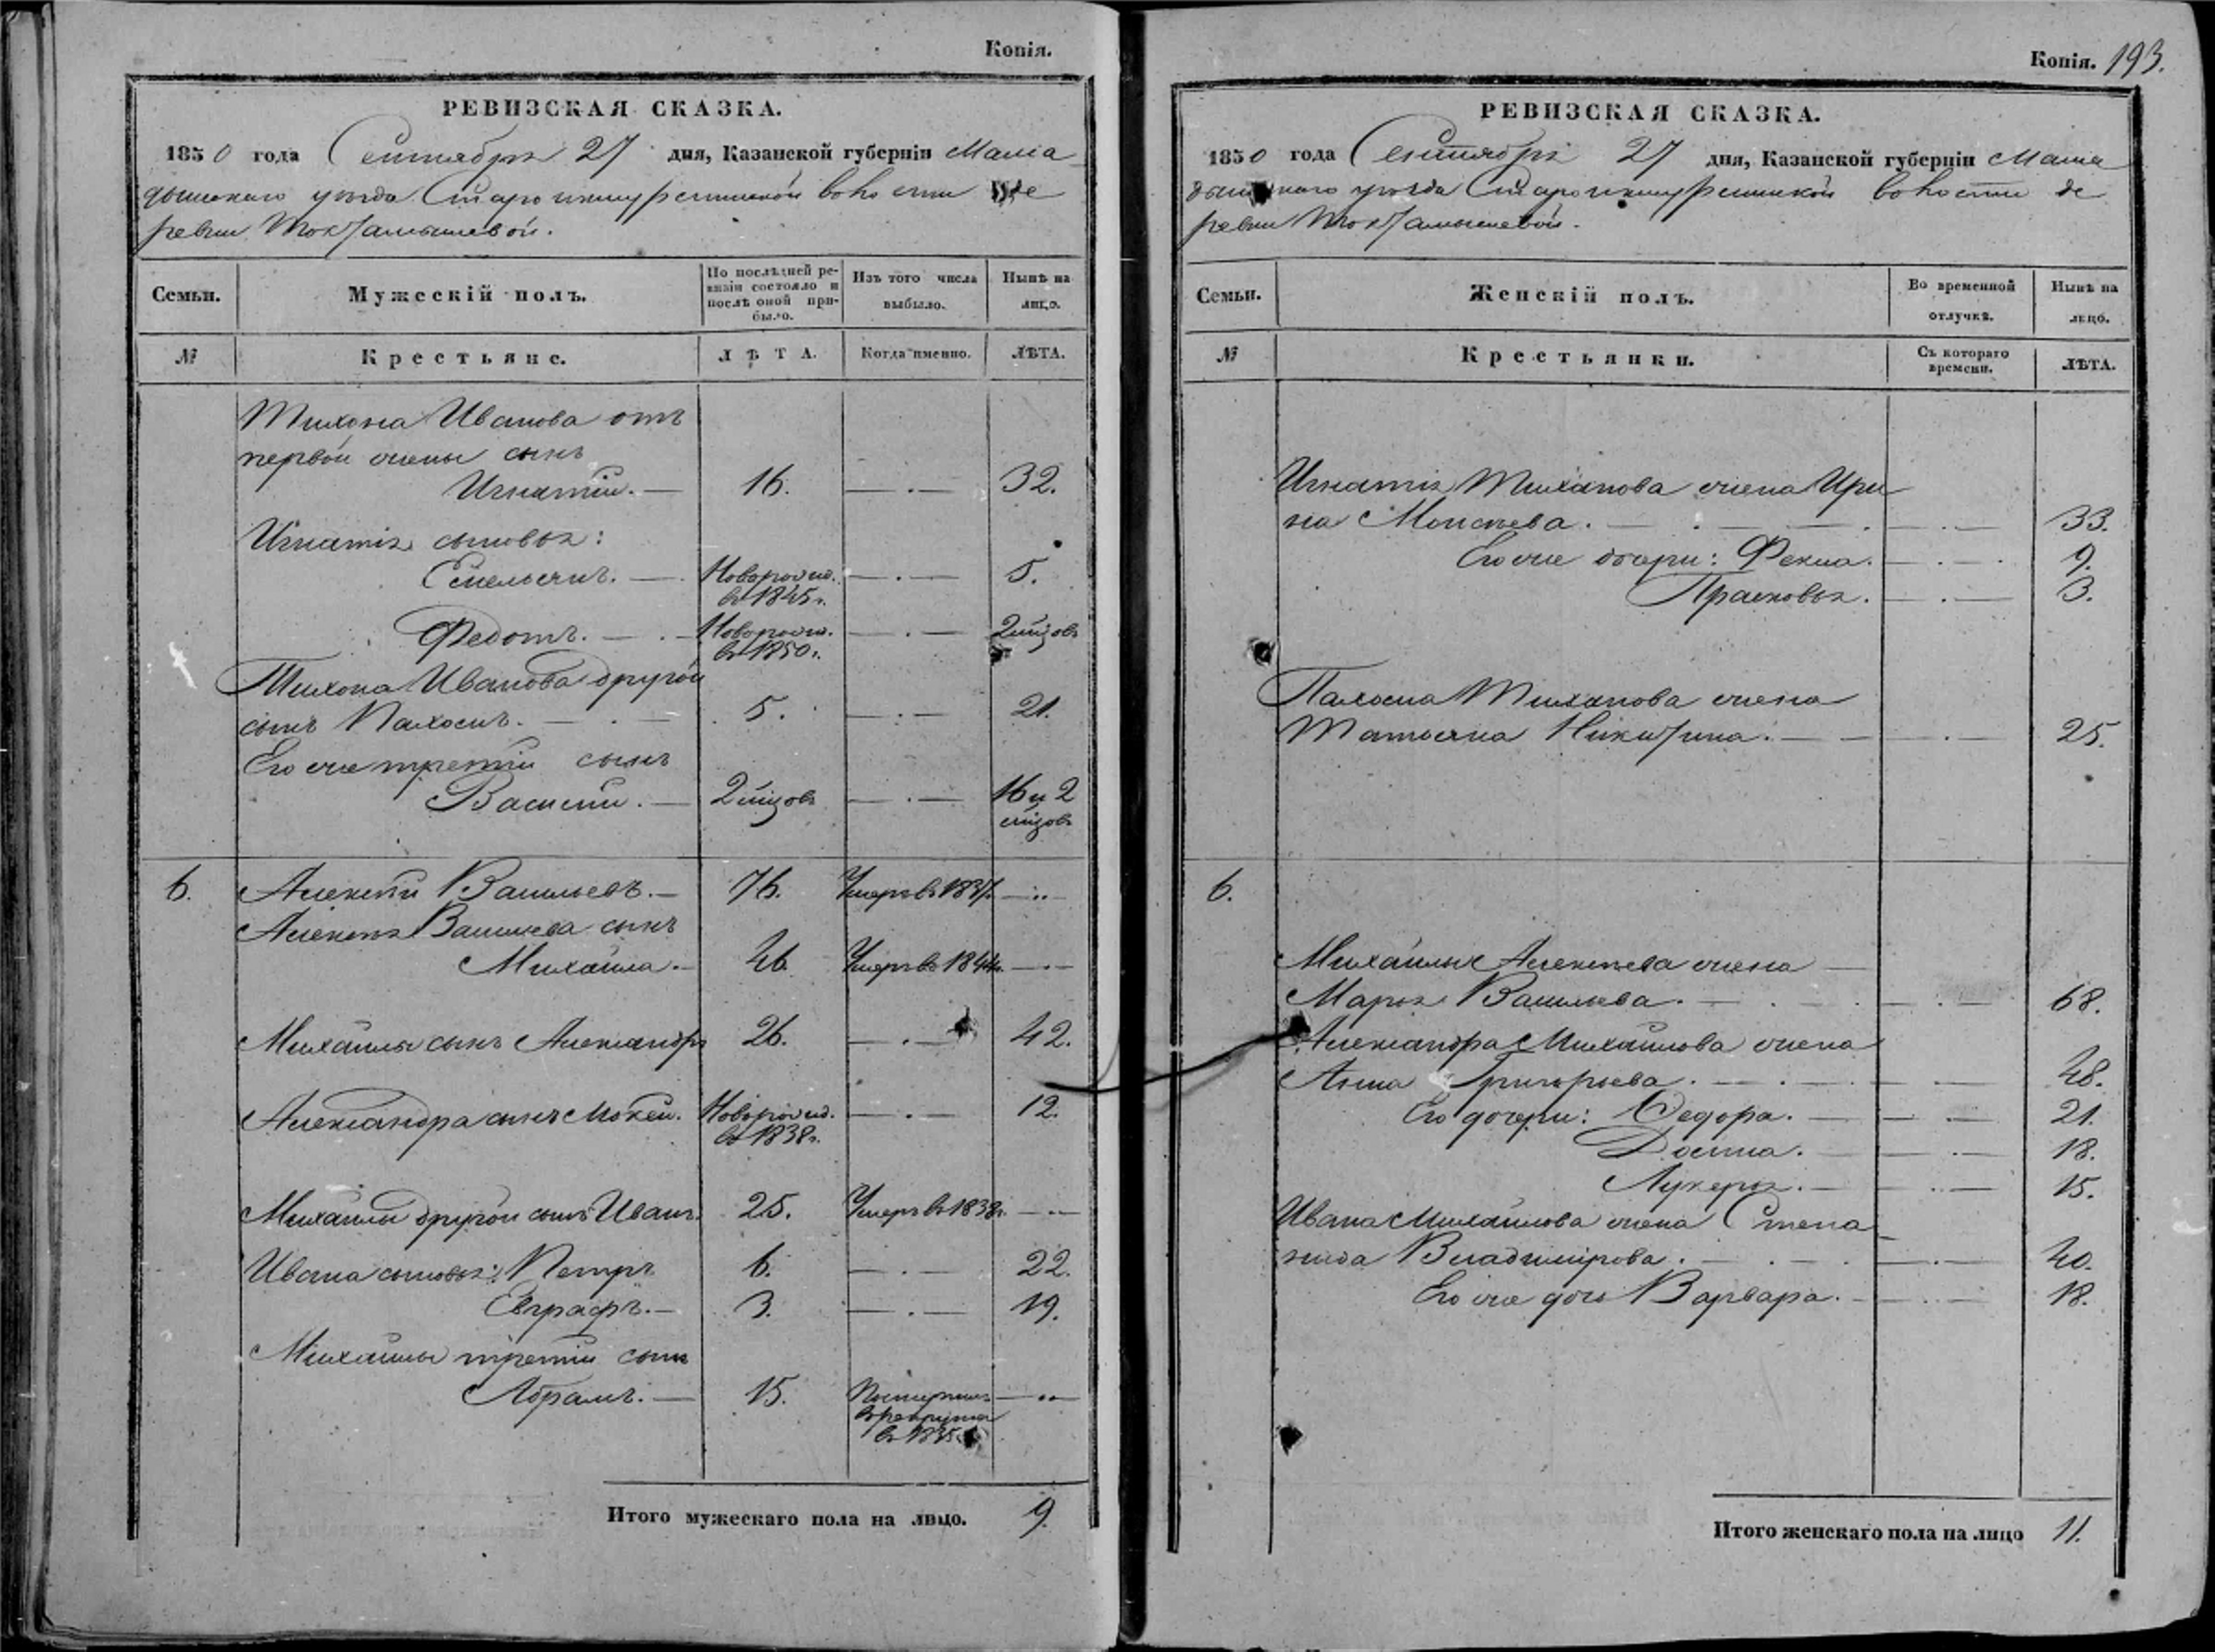 Копія.
РЕВИЗСКАЯ СКАЗКА.
1850 года Сентября 27 дня, Казанской губерніи Мама
дышскаго уѣзда Старо икшурминской волости де
ревни Токтамышевой.
Семьи.
Мужескій полъ.
По послѣдней ре-
визіи состояло и
послѣ оной при-
было.
Изъ того числа
выбыло.
Нынѣ на
лицо.
№
Крестьяне.
ЛѢТА.
Когда именно.
ЛѢТА.
Тихона Иванова отъ
первой жены сынъ
Игнатій. 16. 32.
Игнатія сыновья:
Емельянъ. Новорожд. 5.
въ 1845 г.
Федотъ. Новорожд. 2 мѣсцовъ
въ 1850 г.
Тихона Иванова другой
сынъ Пахосиъ. 5. 21.
Его же третій сынъ
Василій. 2 мѣсцовъ 16 и 2
мѣсцовъ
6. Алексѣй Васильевъ. 76. Умеръ въ 1837.
Алексѣя Васильева сынъ
Михайла. 46 Умеръ въ 1844 г.
Михайлы сынъ Александръ 26. 42.
Александра сынъ Мокей. Новорожд. 12.
въ 1838 г.
Михайлы другой сынъ Иванъ. 25. Умеръ въ 1838 г.
Ивана сыновья: Петръ 6. 22.
Евграфъ. 3. 19.
Михайлы третій сынъ
Абрамъ. 15. Поступилъ
въ рекруты
въ 1835
Итого мужескаго пола на лицо. 9.
Копія. 193.
РЕВИЗСКАЯ СКАЗКА.
1850 года Сентября 27 дня, Казанской губерніи Мама
дышскаго уѣзда Старо икшурминской волости де
ревни Токтамышевой.
Семьи.
Женскій полъ.
Во временной
отлучкѣ.
Нынѣ на
лицо.
№
Крестьянки.
Съ котораго
времени.
ЛѢТА.
Игнатія Тиханова жена Ири
на Моисѣева. 33.
Его же дочери: Фекла. 9.
Прасковья. 3.
Пахосиа Тиханова жена
Татьяна Никитина. 25.
6.
Михайлы Алексѣева жена
Марья Васильева. 68.
Александра Михайлова жена
Анна Григорьева. 48.
Его дочери: Федора. 21.
Домна. 18.
Лукерья. 15.
Ивана Михайлова жена Степа
нида Владимірова. 40.
Его же дочь Варвара. 18.
Итого женскаго пола на лицо 11.